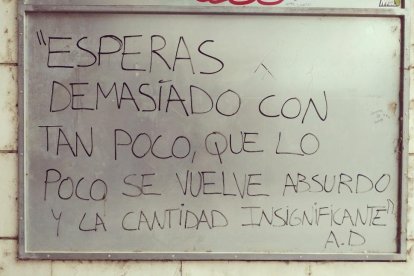 "ESPERAS
DEMASÍADO CON
TAN POCO, QUE LO
POCO SE VUELVE ABSURDO
Y LA CANTIDAD INSIGNIFICANTE"
A.D